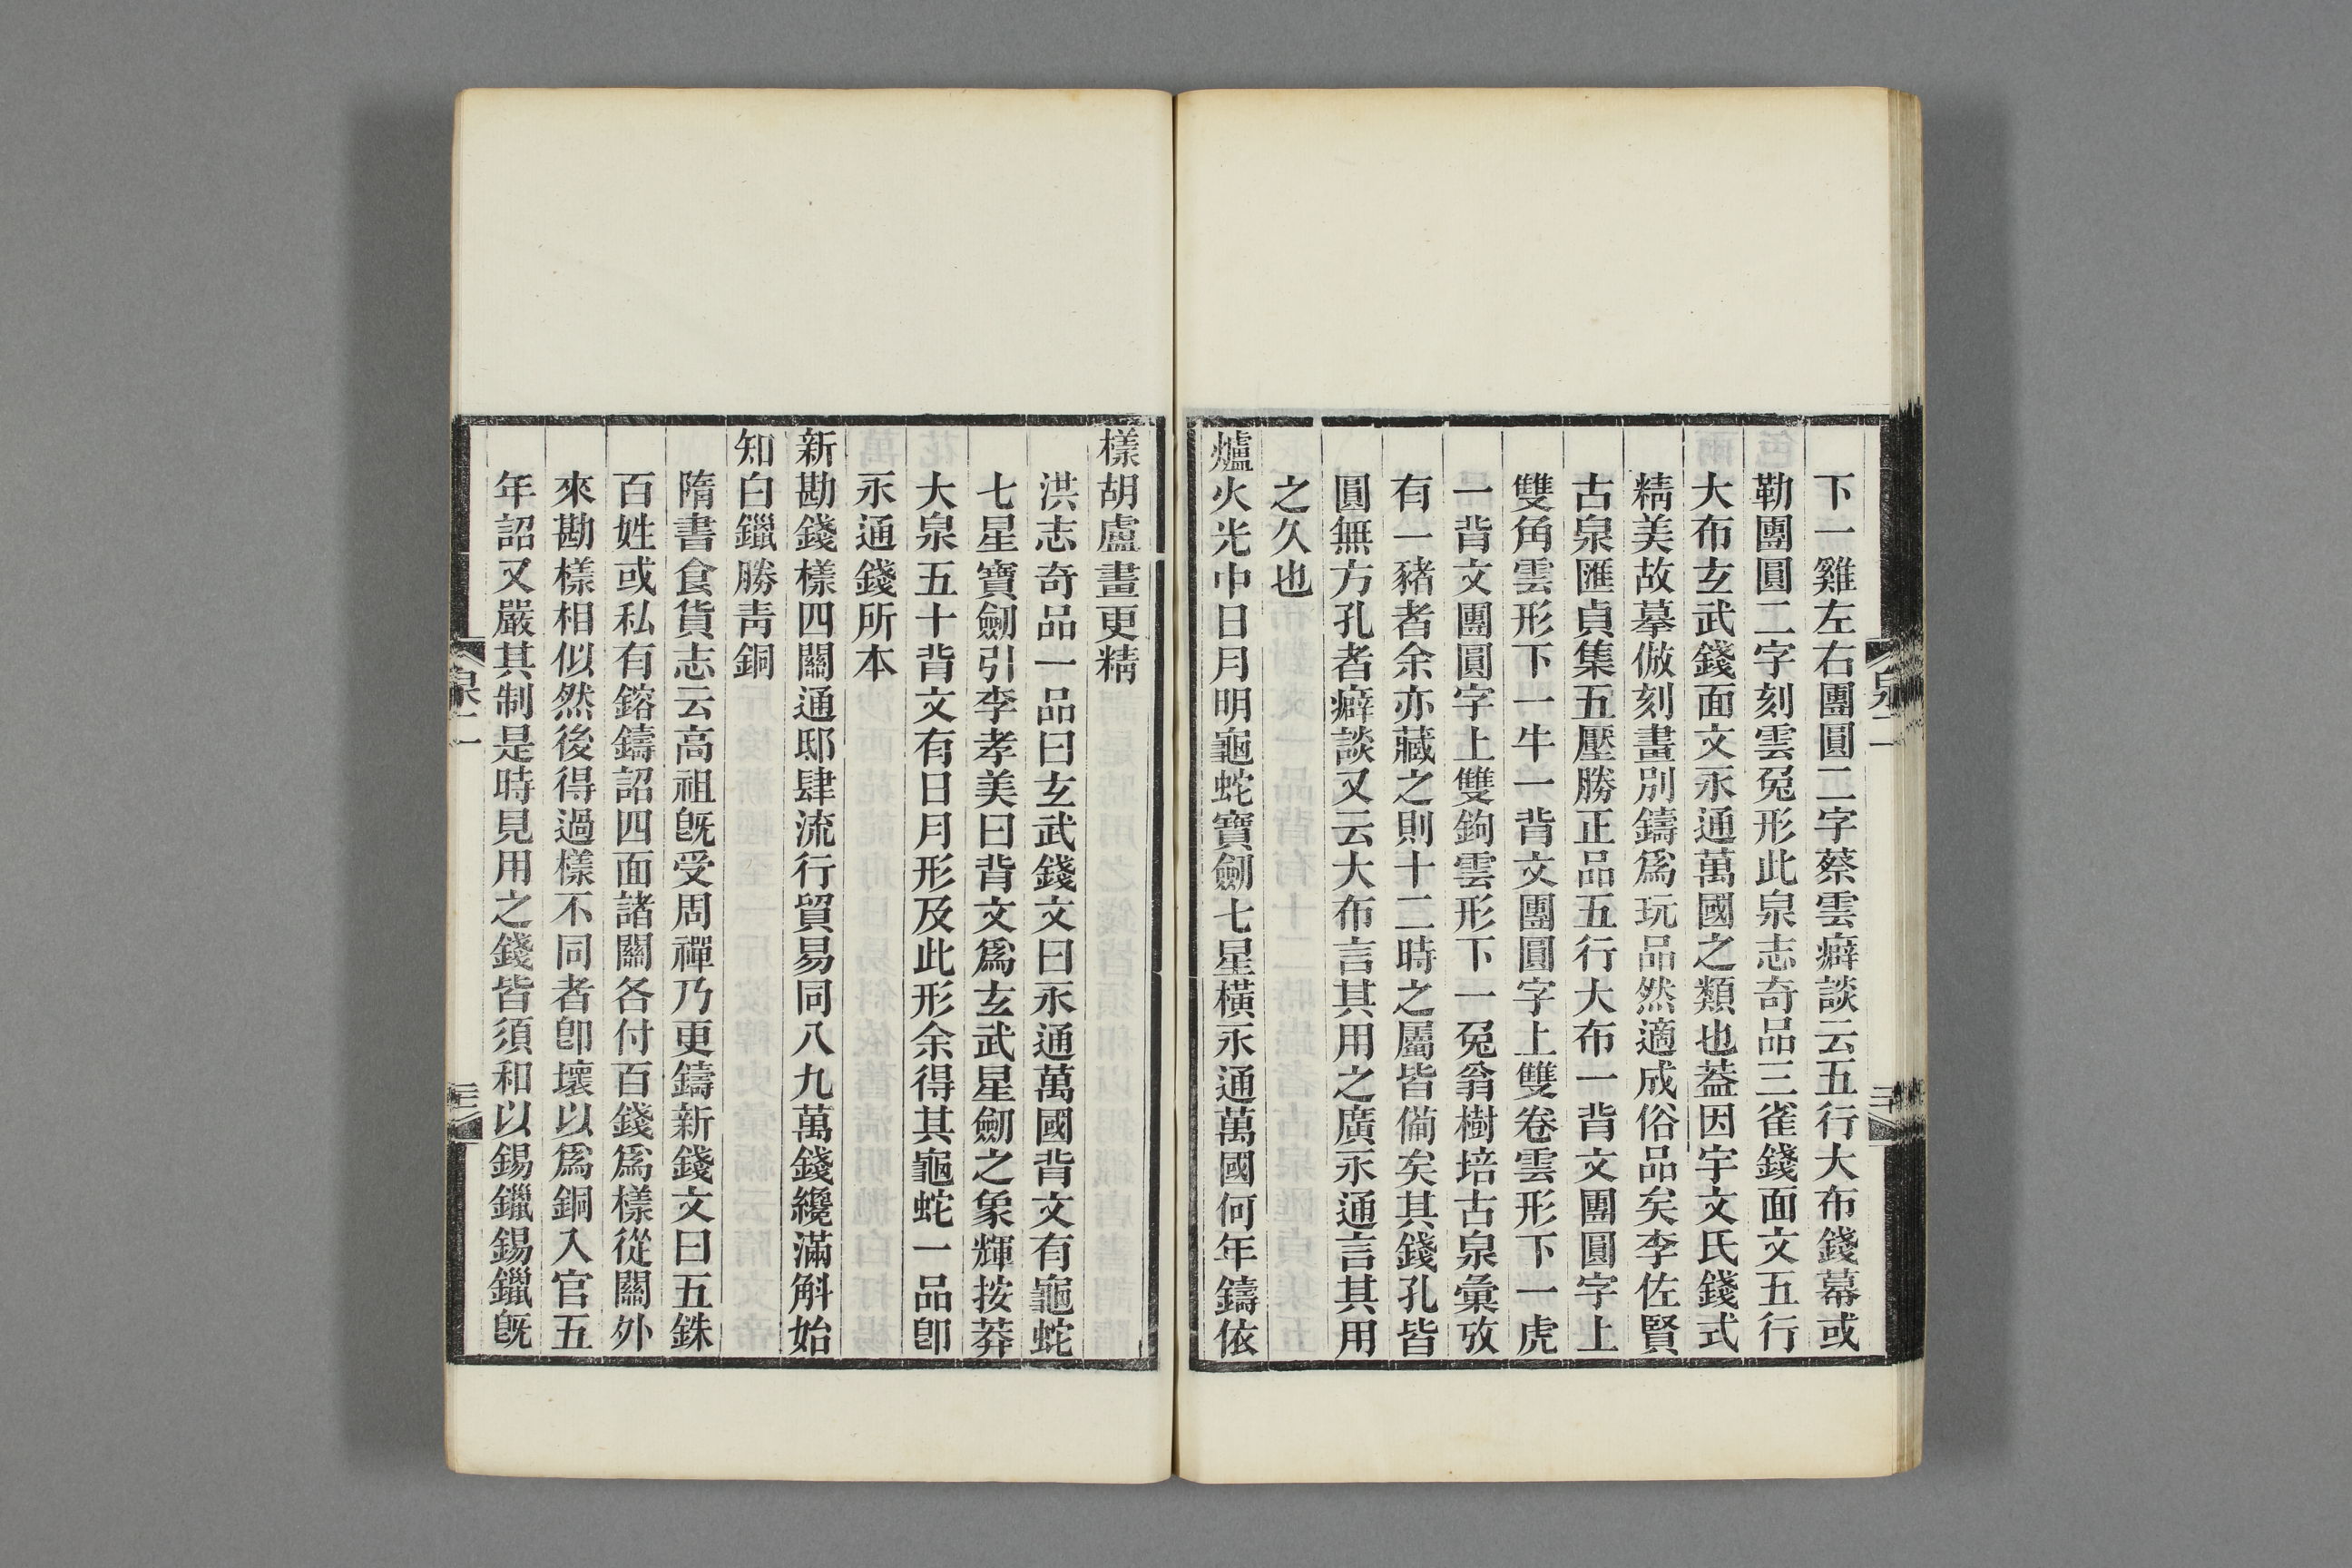 下一雞左右團圓二字蔡雲癖談云五行大布錢幕或
勒團圓二字刻雲兔形此泉志奇品三雀錢面文五行
大布玄武錢面文永通萬國之類也葢因宇文氏錢式
精美故摹倣刻畫別鑄爲玩品然適成俗品矣李佐賢
古泉匯貞集五壓勝正品五行大布一背文團圓字上
雙角雲形下一牛一背文團圓字上雙卷雲形下一虎
一背文團圓字上雙鉤雲形下一兔翁樹培古泉彙攷
有一豬者余亦藏之則十二時之屬皆備矣其錢孔皆
圓無方孔者癖談又云大布言其用之廣永通言其用
之久也
爐火光中日月明龜蛇寶劒七星橫永通萬國何年鑄依
樣胡盧畫更精
洪志奇品一品曰玄武錢文曰永通萬國背文有龜蛇
七星寶劒引李孝美曰背文爲玄武星劒之象輝按莽
大泉五十背文有日月形及此形余得其龜蛇一品卽
永通錢所本
新勘錢樣四關通邸肆流行貿易同八九萬錢纔滿斛始
知白鑞勝靑銅
隋書食貨志云高祖旣受周禪乃更鑄新錢文曰五銖
百姓或私有鎔鑄詔四面諸關各付百錢爲樣從關外
來勘樣相似然後得過樣不同者卽壞以爲銅入官五
年詔又嚴其制是時見用之錢皆須和以錫鑞錫鑞旣
泉二